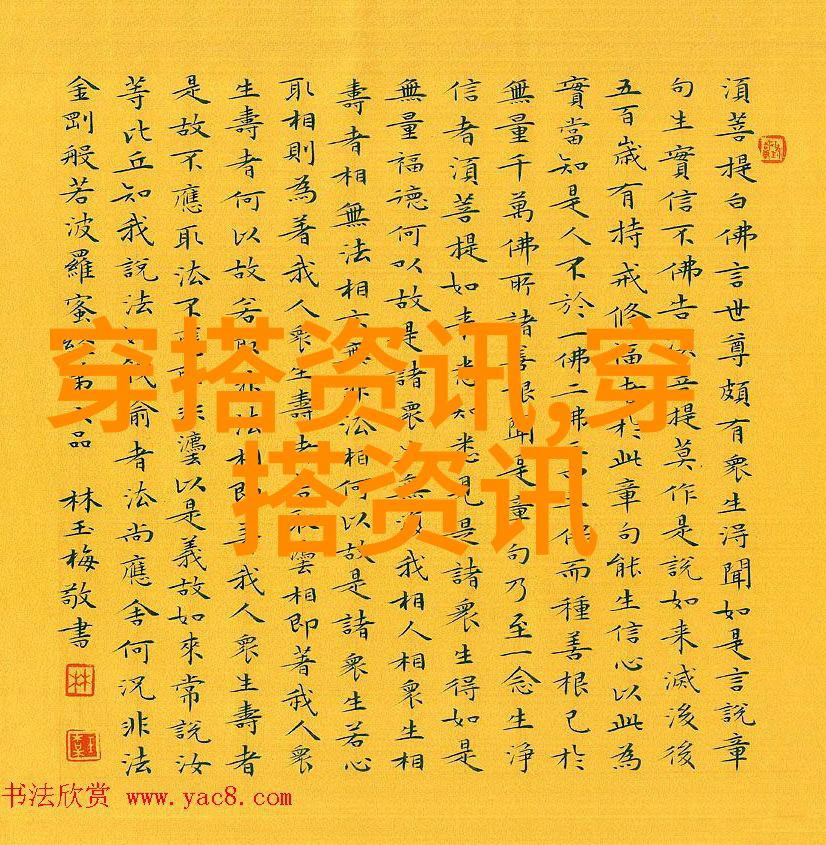 須菩提白佛言世尊頗有衆生得聞如是言說章
句生實信不佛告菩提莫作是說如来滅後後
五百歲有持戒修福者於此章句能生信心以此為
實當知是人不於一佛二佛而種善根已於
無量千萬佛所諸善根聞是章句乃至一念生淨
信者須菩提如来悉知悉見是諸衆生得如是
無量福德何以故是諸衆生無復我相人相衆生相
壽者相無法相亦無非法相何以故是諸衆生若心
取相則為著我人衆生壽者若取灋相即著我人衆
生壽者何以故若取非法相即著我人衆生壽者
是故不應取法不應取非灋以是義故如來常說汝
等比丘知我說法如筏喻者法尚應舍何況非法
金剛般若波羅蜜經第六品 林玉梅敬書
林
穿搭资讯,穿
搭资讯
书法欣赏 www.yac8.com